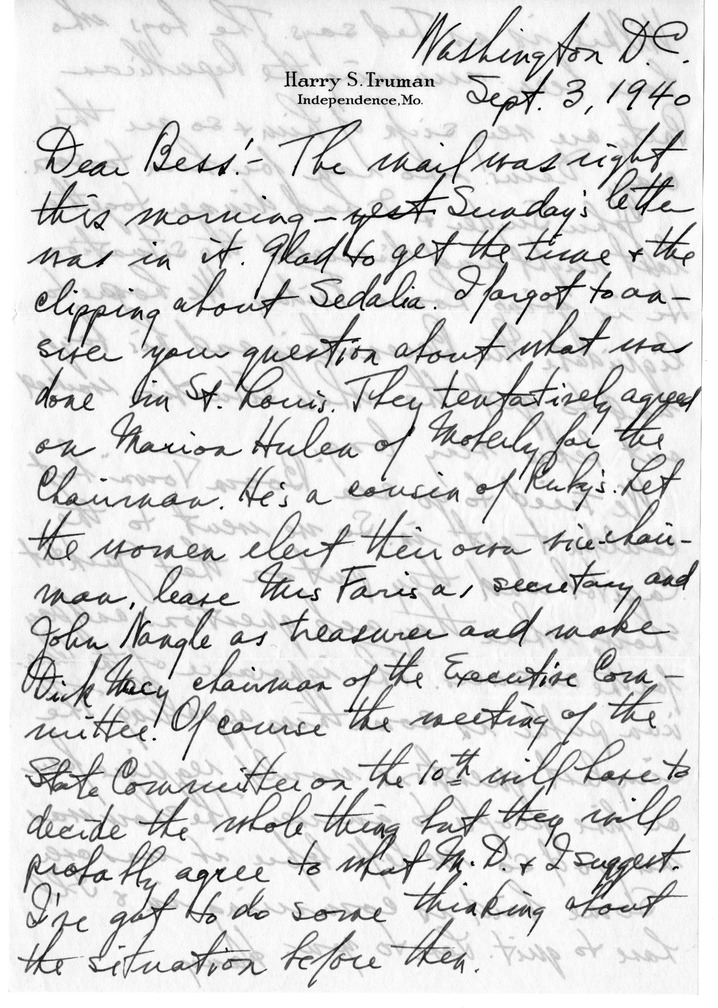 Washington D.C.
Harry S. Truman
Independence, Mo.
Sept. 3, 1940
Dear Bess:- The mail was right
this morning - yest Sunday's letter
was in it. Glad to get the time + the
clipping about Sedalia. I forgot to an-
swer your question about what was
done in St. Louis. They tentatively agreed
on Marion Hulen of Moberly for the
Chairman. He's a cousin of Ruby's. Let
the women elect their own vice chair-
man, leave Mrs Faris as secretary and
John Nangle as treasurer and make
Dick chairman of the Executive Com-
mittee. Of course the meeting of the
State Committee on the 10th will have to
decide the whole thing but they will
probably agree to what M.D. + I suggest.
I've got to do some thinking about
the situation before then.